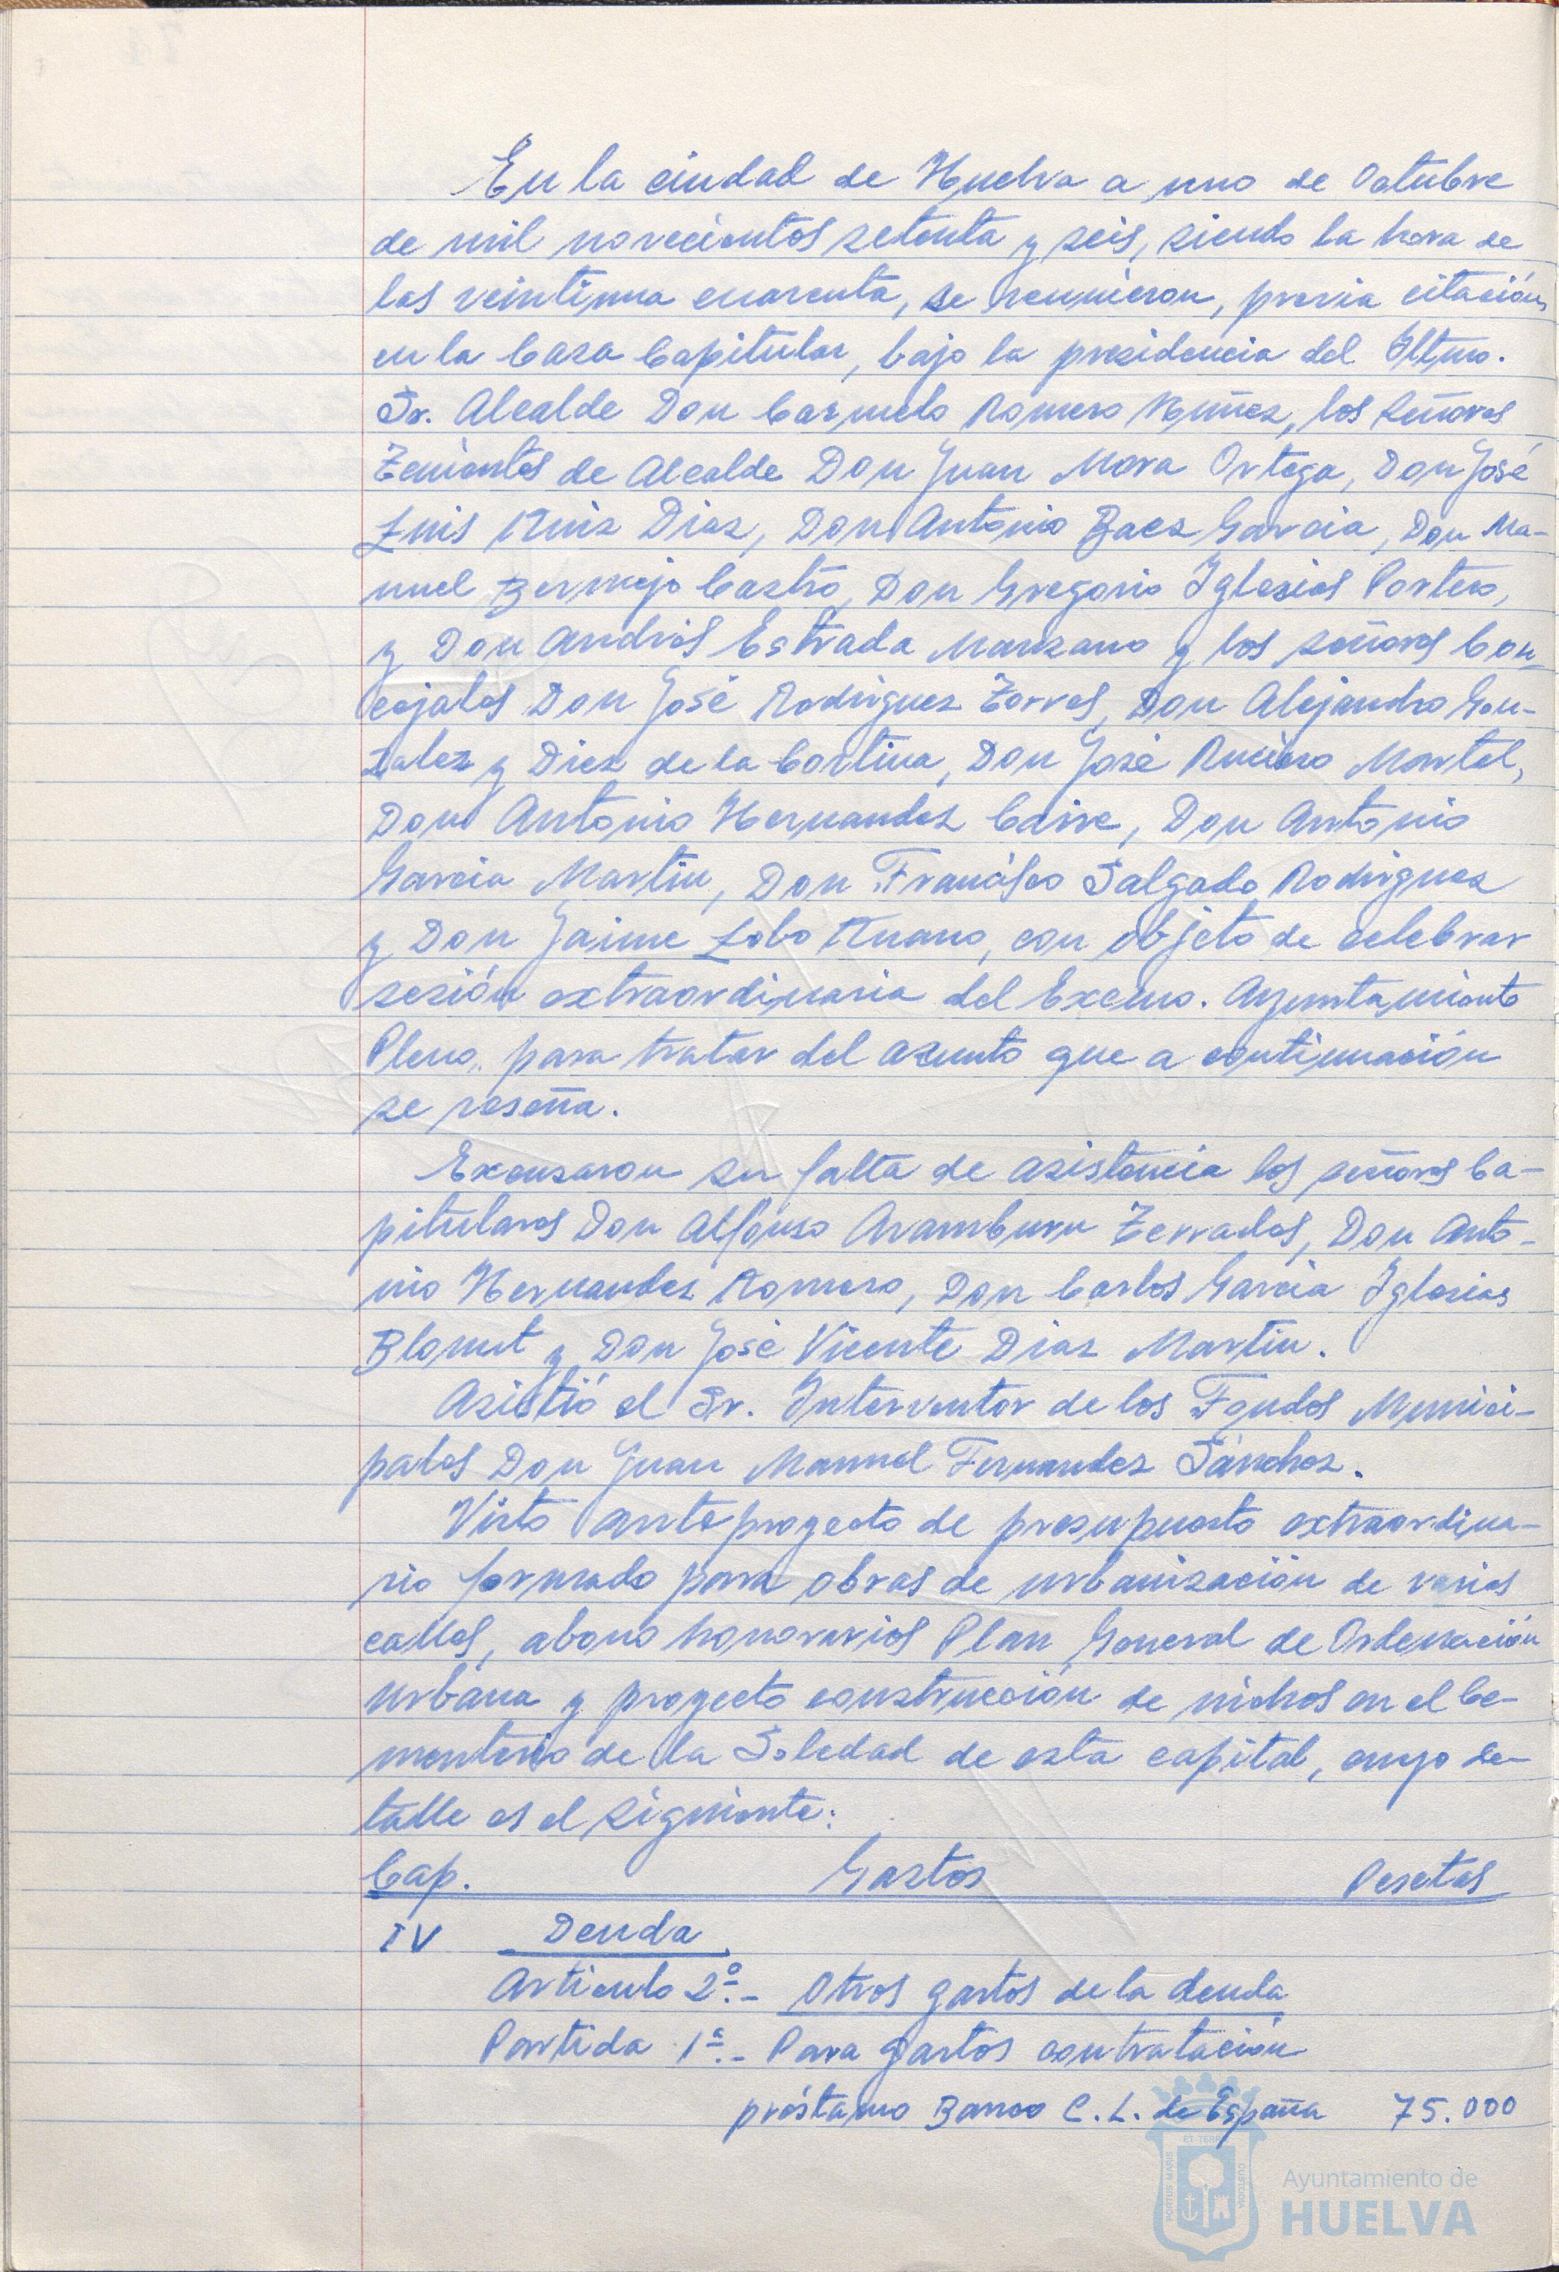 En la ciudad de Huelva a uno de Octubre
de mil novecientos setenta y seis, siendo la hora de
las veintiuna cuarenta, se reunieron, previa citación
en la Casa Capitular, bajo la presidencia del Iltmo.
Sr. Alcalde Don Carmelo Romero Nuñez, los señores
Tenientes de Alcalde Don Juan Mora Ortega, Don José
Luis Ruiz Diaz, Don Antonio Baez Garcia, Don Ma-
nuel Bermejo Castro, Don Gregorio Iglesias Portero,
y Don Andrés Estrada Manzano y los señores Con-
cejales Don José Rodriguez Torres, Don Alejandro Gon-
zalez y Diez de la Cortina, Don José Rucero Martel,
Don Antonio Hernandez Carre, Don Antonio
Garcia Martin, Don Francisco Salgado Rodriguez
y Don Jaime Lobo Ruano, con objeto de celebrar
sesión extraordinaria del Excmo. Ayuntamiento
Pleno, para tratar del asunto que a continuación
se reseña.
Excusaron su falta de asistencia los señores Ca-
pitulares Don Alfonso Aramburu Terrades, Don Anto-
nio Hernandez Romero, Don Carlos Garcia Iglesias
y Don José Vicente Diaz Martin.
Asistió el Sr. Interventor de los Fondos Munici-
pales Don Juan Manuel Fernandez Sánchez.
Visto anteproyecto de presupuesto extraordina-
rio formado para obras de urbanización de varias
calles, abono honorarios Plan General de Ordenación
Urbana y proyecto construcción de nichos en el Ce-
menterio de la Soledad de esta capital, cuyo de-
talle es el siguiente:
Cap. Gastos Pesetas
IV Deuda
Articulo 2º.- Otros gastos de la deuda
Partida 1ª.- Para gastos contratación
préstamo Banco C. L. de España 75.000
PORTUS MARIS ET TERRAE CUSTODIA
Ayuntamiento de
HUELVA